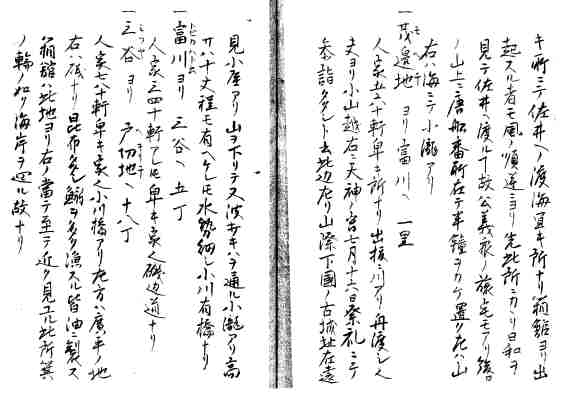 キ所ニテ佐井ヘノ渡海宜キ所ナリ箱舘ヨリ出
起スル者モ風ノ順逆ニヨリ先此所ニカヽリ日和ヲ
見テ佐井ヘ渡ル故公義衆ノ旅宅モアリ後
ノ山上ニ唐船番所在テ半鐘ヲカケ置ク左ハ山
右ハ海ニテ小瀧アリ
一茂邊地 ヨリ富川ヘ 一里
人家五六十軒卑キ所ナリ出揚ニ川アリ舟渡し
夫ヨリ小山越右ニ天神ノ宮七月十六日祭礼ニテ
参詣 此辺左リ山際下國ノ古城址在遠
見小屋アリ山ヲ下リテ又波打キハヲ通ル小瀧アリ高
サ八十丈程モ有ヘケレ𪜈水勢細し小川有橋ナリ
一富川ヨリ 三谷ヘ 五丁
人家三四十軒アレ𪜈卑キ家 磯辺道ナリ
一三谷ヨリ 戸切地ヘ 十八丁
人家七八十軒卑キ家 小川橋アリ左方ハ廣平ノ地
右ハ磯ナリ昆布多し鰯ヲ多ク漁ス皆油ニ製ス
箱舘ハ此地ヨリ右ノ當テ至テ近ク見エル此所箕
ノ輪ノ如リ海岸ヲ廻ル故ナリ